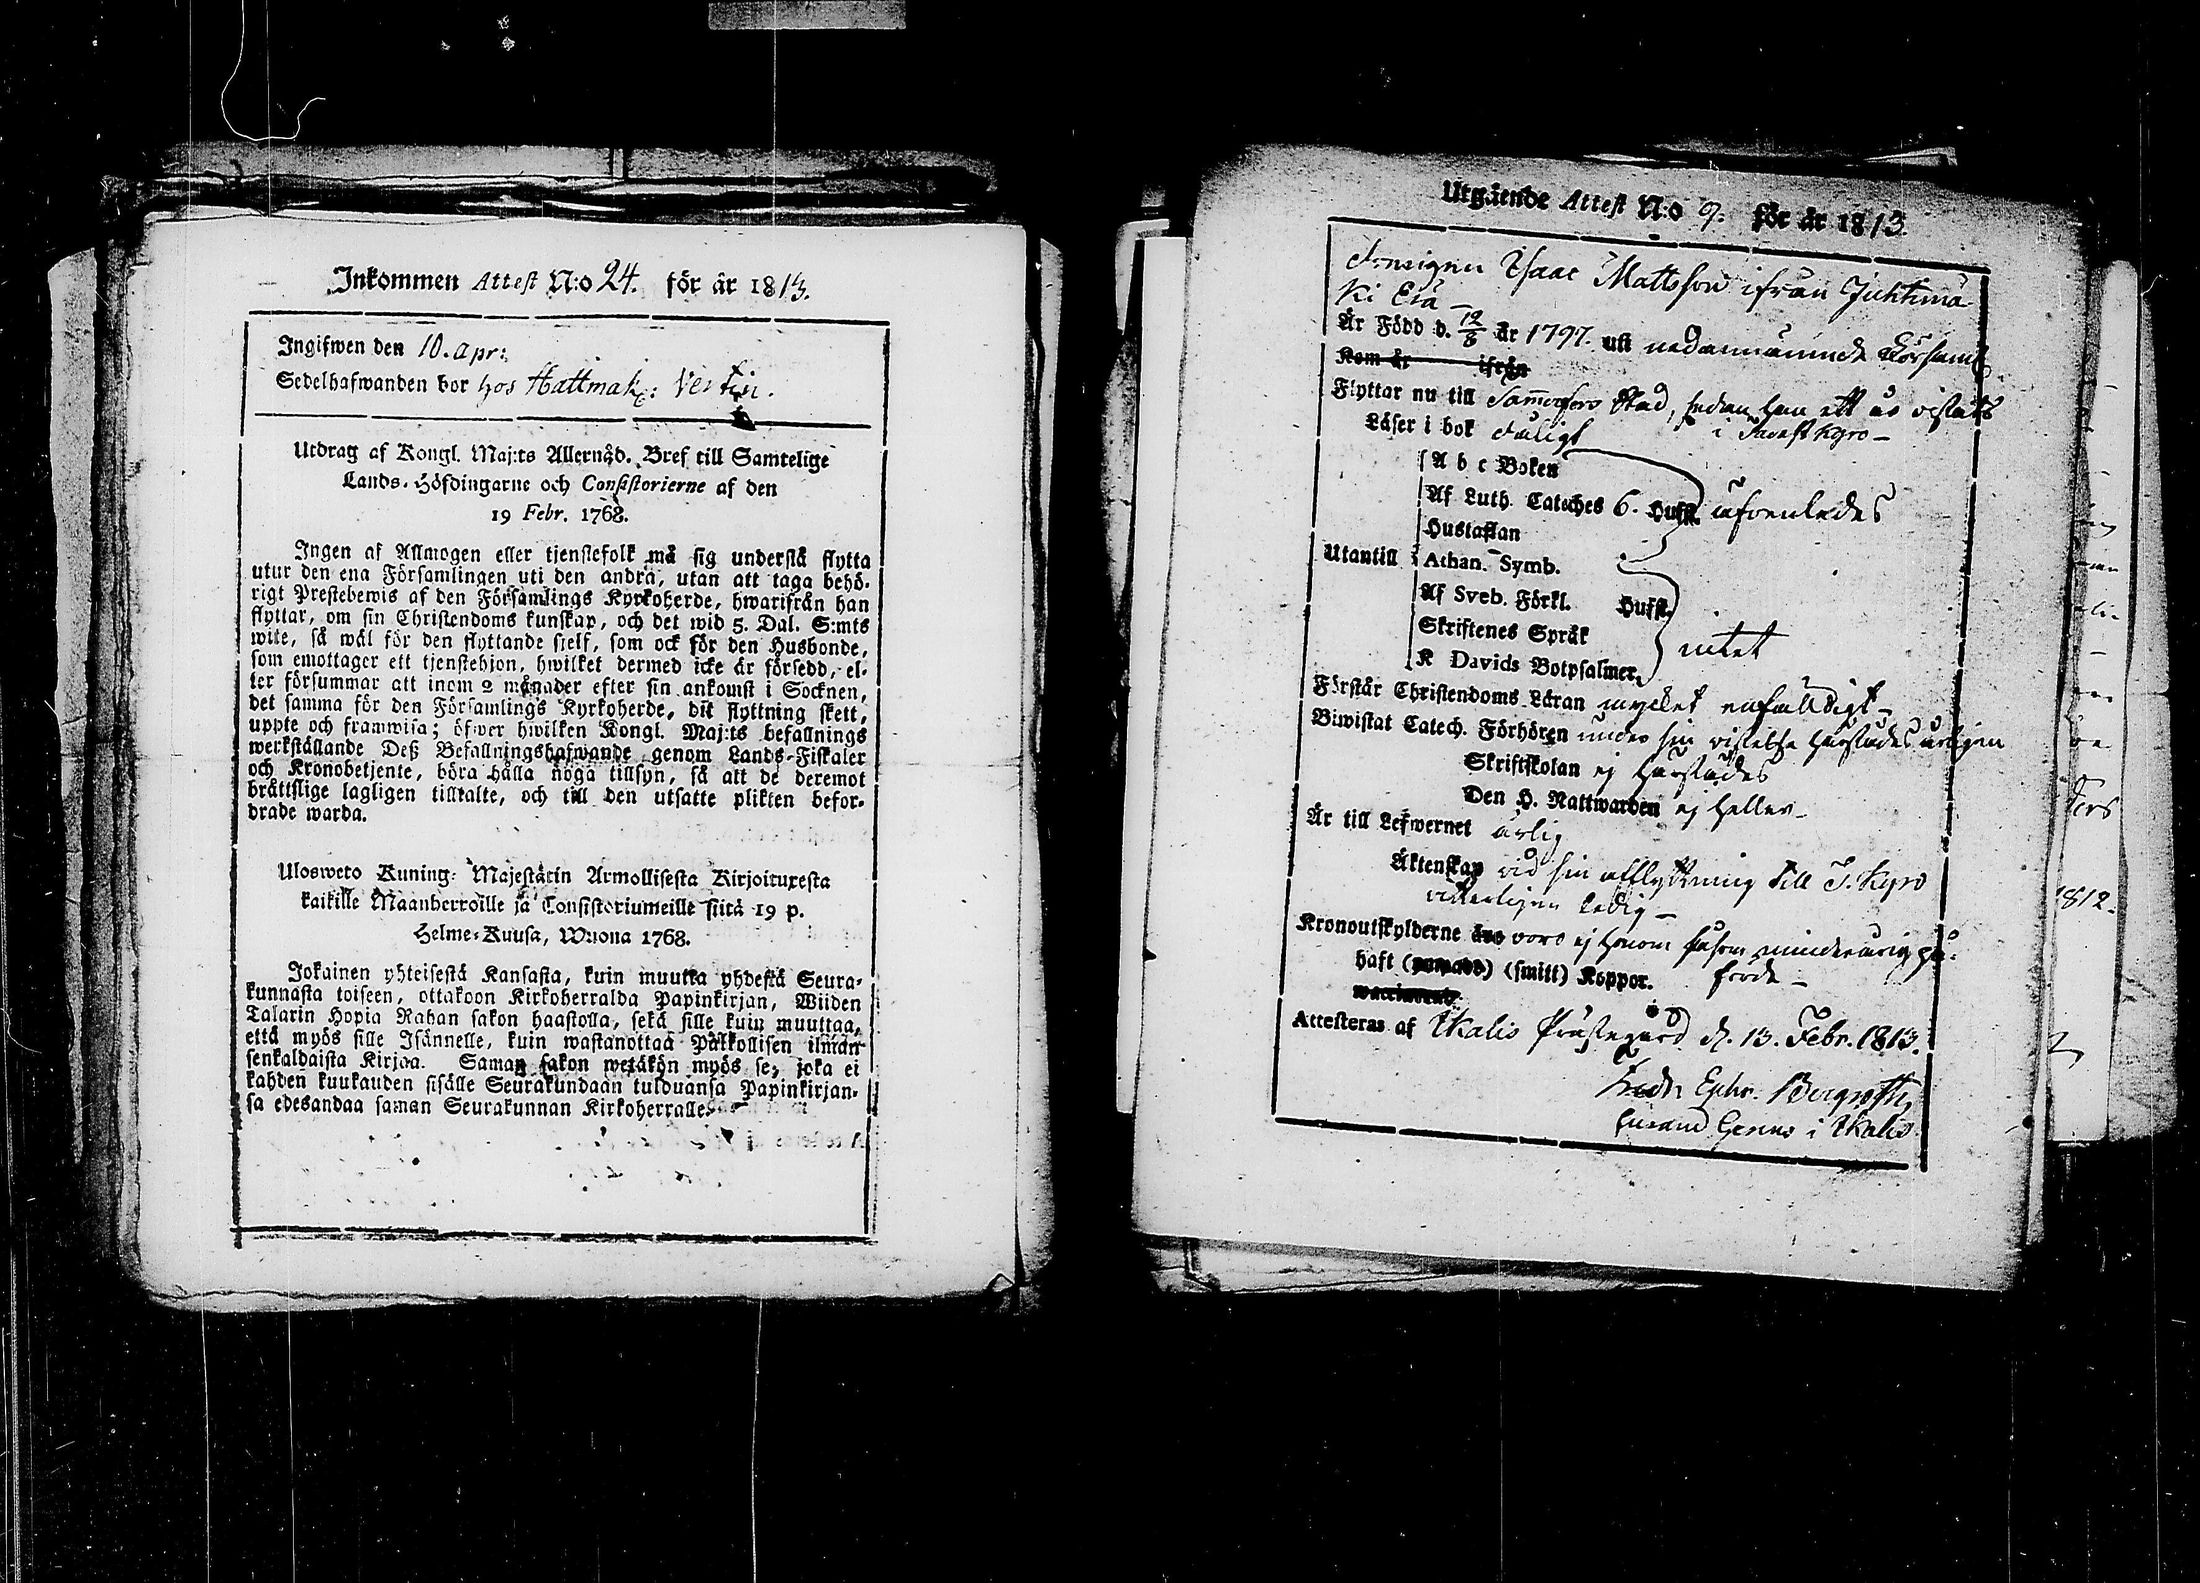 Inkommen Attest N:o 24. för år 1813.
Ingifwen den 10. apr:
Sedelhafwanden bor hos Hattmak: Vertin.
Utdrag af Kongl. Maj:ts Allernåd. Bref till Samtelige
Lands-Höfdingarne och Consistorierne af den
19 Febr. 1768.
Ingen af Allmogen eller tjenstefolk må sig understå flytta
utur den ena Församlingen uti den andra, utan att taga behö-
rigt Prestebewis af den Församlings Kyrkoherde, hwarifrån han
flyttar, om sin Christendoms kunskap, och det wid 5. Dal. S:mts
wite, så wäl för den flyttande sielf, som ock för den Husbonde,
som emottager ett tjenstehjon, hwilket dermed icke är försedd, el-
ler försummar att inom 2 månader efter sin ankomst i Socknen,
det samma för den Församlings Kyrkoherde, dit flyttning skett,
uppte och framwisa; öfwer hwilken Kongl. Maj:ts befallnings
werkställande Deß Befallningshafwande genom Lands-Fiskaler
och Kronobetjente, böra hålla noga tillsyn, så att de deremot
brättslige lagligen tilltalte, och till den utsatte plikten befor-
drade warda.
Ulosweto Kuning: Majestätin Armollisesta Kirjoituxesta
kaikille Maanherroille ja Consistoriumeille siitä 19 p.
Helme-Kuusa, Wuona 1768.
Jokainen yhteisestä Kansasta, kuin muutta yhdestä Seura-
kunnasta toiseen, ottakoon Kirkoherralda Papinkirjan, Wiiden
Talarin Hopia Rahan sakon haastolla, sekä sille kuin muuttaa,
että myös sille Isännelle, kuin wastanottaa Palkollisen ilman
senkaldaista Kirjaa. Saman sakon wetäkön myös se, joka ei
kahden kuukauden sisälle Seurakundaan tulduansa Papinkirjan-
sa edesandaa saman Seurakunnan Kirkoherralle.
Utgående Attest N:o 9. för år 1813.
Isaac Mattsson ifrån Juhtimä-
ki Erä –
Är Född d. 12/8 år 1797. uti nedannämnde Församl.
Kom år ifrån
Flyttar nu till Tammerfors Stad, sedan han ett år vistats
i Tavastkyro –
Läser i bok dåligt
Utantill
A b c Boken
Af Luth. Cateches 6. Hufst. oförenledes
Hustaflan
Athan. Symb.
Af Sveb. Förkl. Hufst.
Skriftenes Språk intet
K Davids Botpsalmer.
Förstår Christendoms Läran mycket enfaldigt –
Biwistat Catech. Förhören under sin vistelse härstädes årligen
Skriftskolan ej härstädes
Den H. Nattwarden ej heller –
Är till Lefwernet ärlig
Äktenskap vid sin afflyttning till T. Kyro
veterligen ledig –
Kronoutskylderne voro ej honom såsom minderårig på-
förde –
haft (smitt) Koppor.
Attesteras af Ikalis Prästegård d. 13. Febr. 1813.
Fredr Ephr. Bergroth,
i Ikalis.
1812.